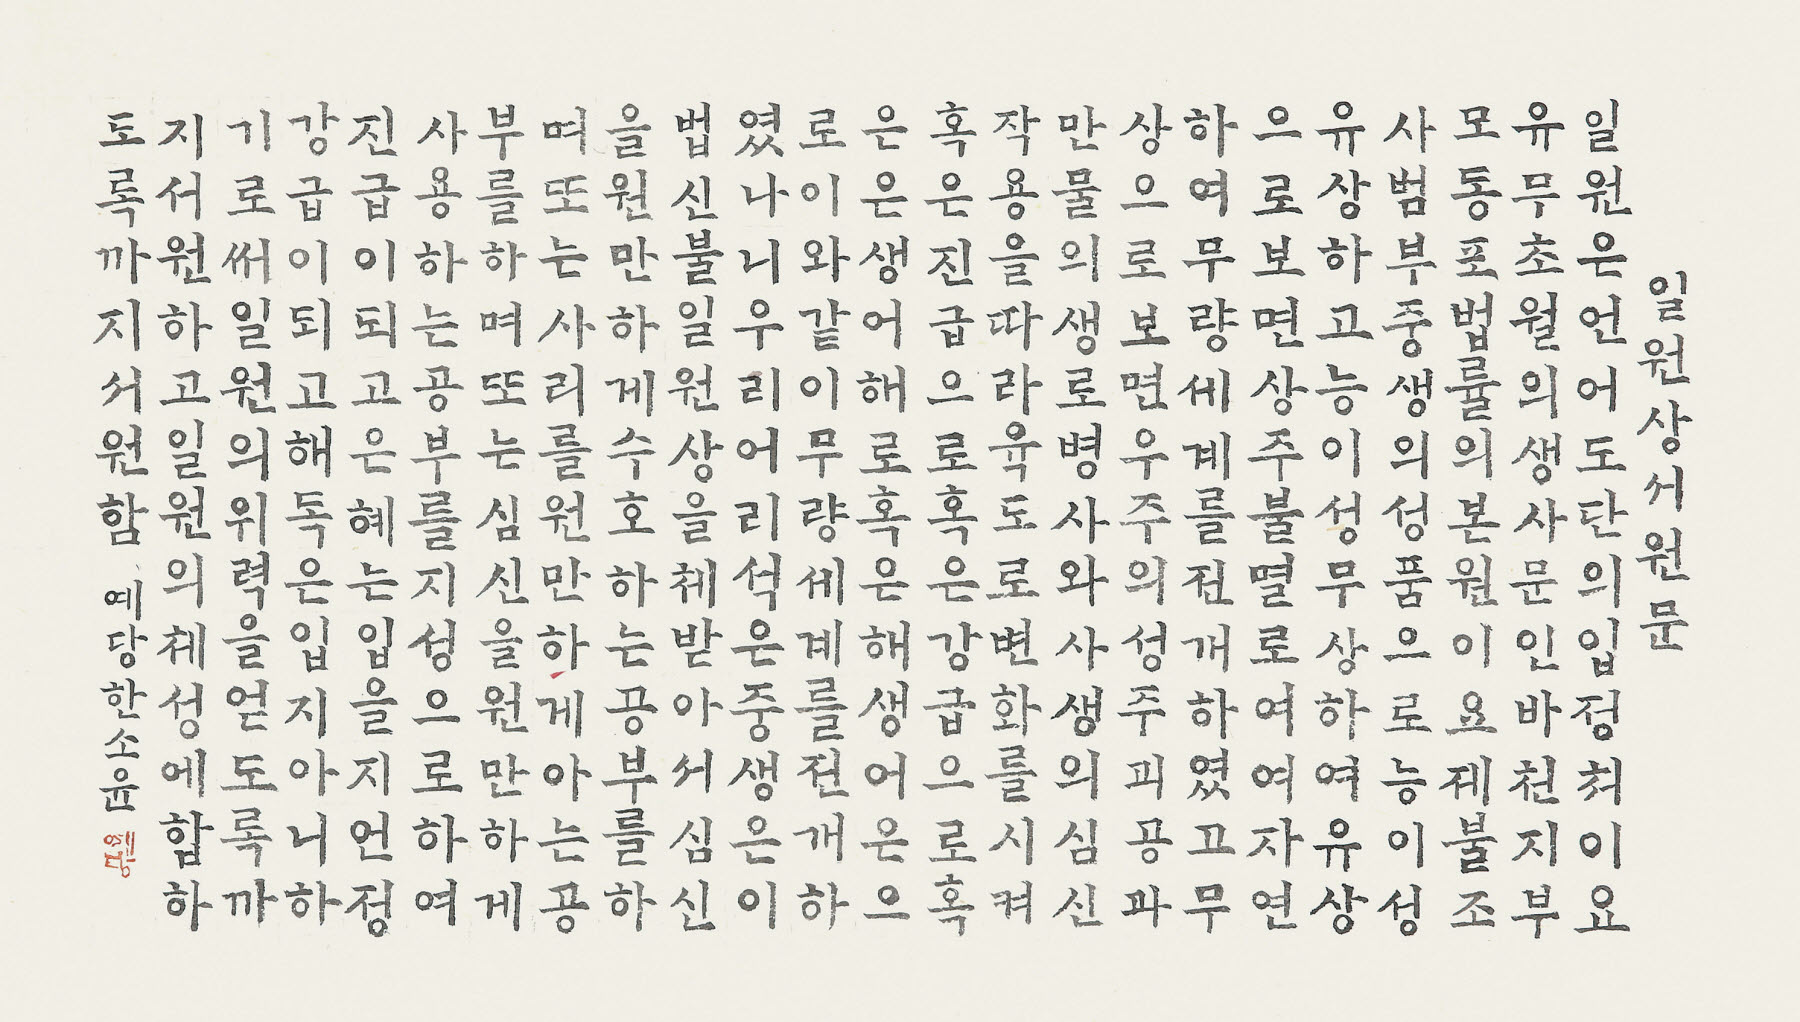 일원상서원문
일원은언어도단의입정처이요
유무초월의생사문인바천지부
모동포법률의본원이요제불조
사범부중생의성품으로능이성
유상하고능이성무상하여유상
으로보면상주불멸로여여자연
하여무량세계를전개하였고무
상으로보면우주의성주괴공과
만물의생로병사와사생의심신
작용을따라육도로변화를시켜
혹은진급으로혹은강급으로혹
은은생어해로혹은해생어은으
로이와같이무량세계를전개하
였나니우리어리석은중생은이
법신불일원상을체받아서심신
을원만하게수호하는공부를하
며또는사리를원만하게아는공
부를하며또는심신을원만하게
사용하는공부를지성으로하여
진급이되고은혜는입을지언정
강급이되고해독은입지아니하
기로써일원의위력을얻도록까
지서원하고일원의체성에합하
도록까지서원함 예당한소윤